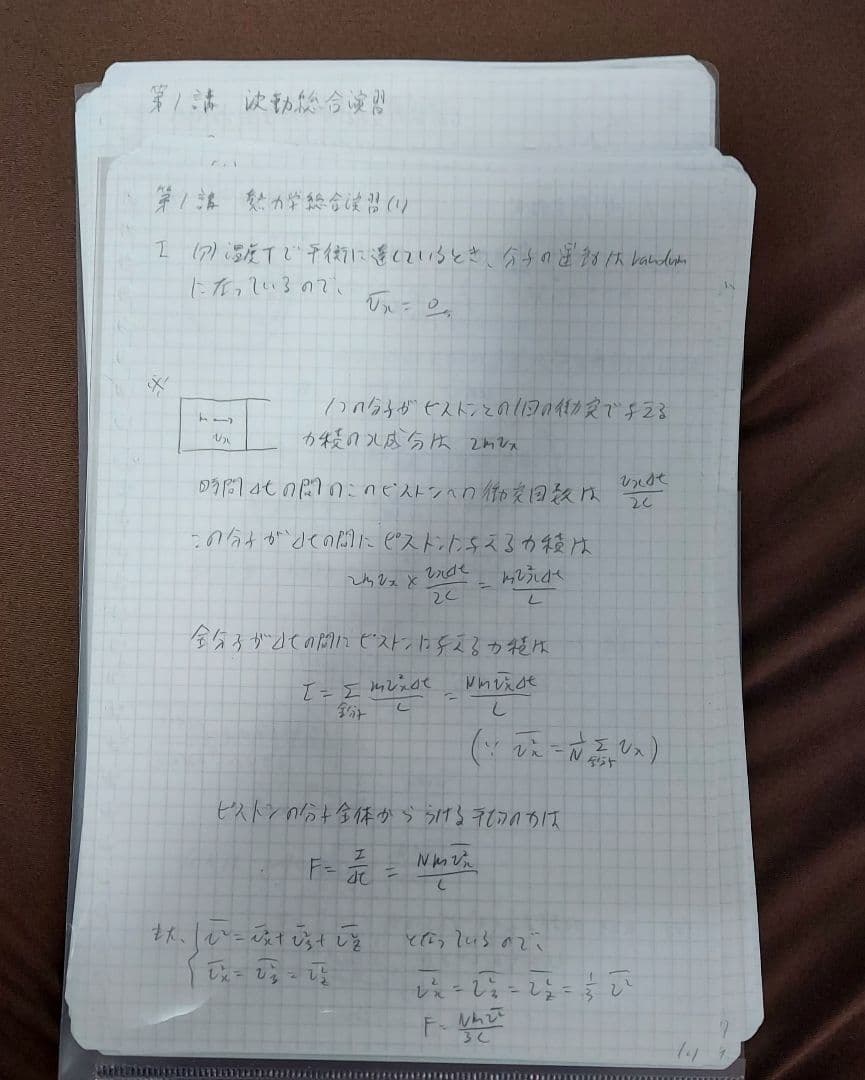 第1講 波動総合演習
第1講 熱力学総合演習(1)
I (ア) 温度Tで平衡に達しているとき、分子の運動はrandom
になっているので、
v̅x = 0
※
m →
vx
1つの分子がピストンとの1回の衝突で与える
力積のx成分は 2mvx
時間Δtの間のこのピストンへの衝突回数は vxΔt/2L
この分子がΔtの間にピストンに与える力積は
2mvx × vxΔt/2L = mvx²Δt/L
全分子がΔtの間にピストンに与える力積は
I = Σ全分子 mvx²Δt/L = Nm\overline{vx²}Δt/L
(∵ \overline{vx²} = 1/N Σ全分子 vx)
ピストンの分子全体からうける平均の力は
F = I/Δt = Nm\overline{vx²}/L
また、 { \overline{v²} = \overline{vx²} + \overline{vy²} + \overline{vz²} となっているので、
\overline{vx²} = \overline{vy²} = \overline{vz²}
\overline{vx²} = \overline{vy²} = \overline{vz²} = 1/3 \overline{v²}
F = Nm\overline{v²}/3L